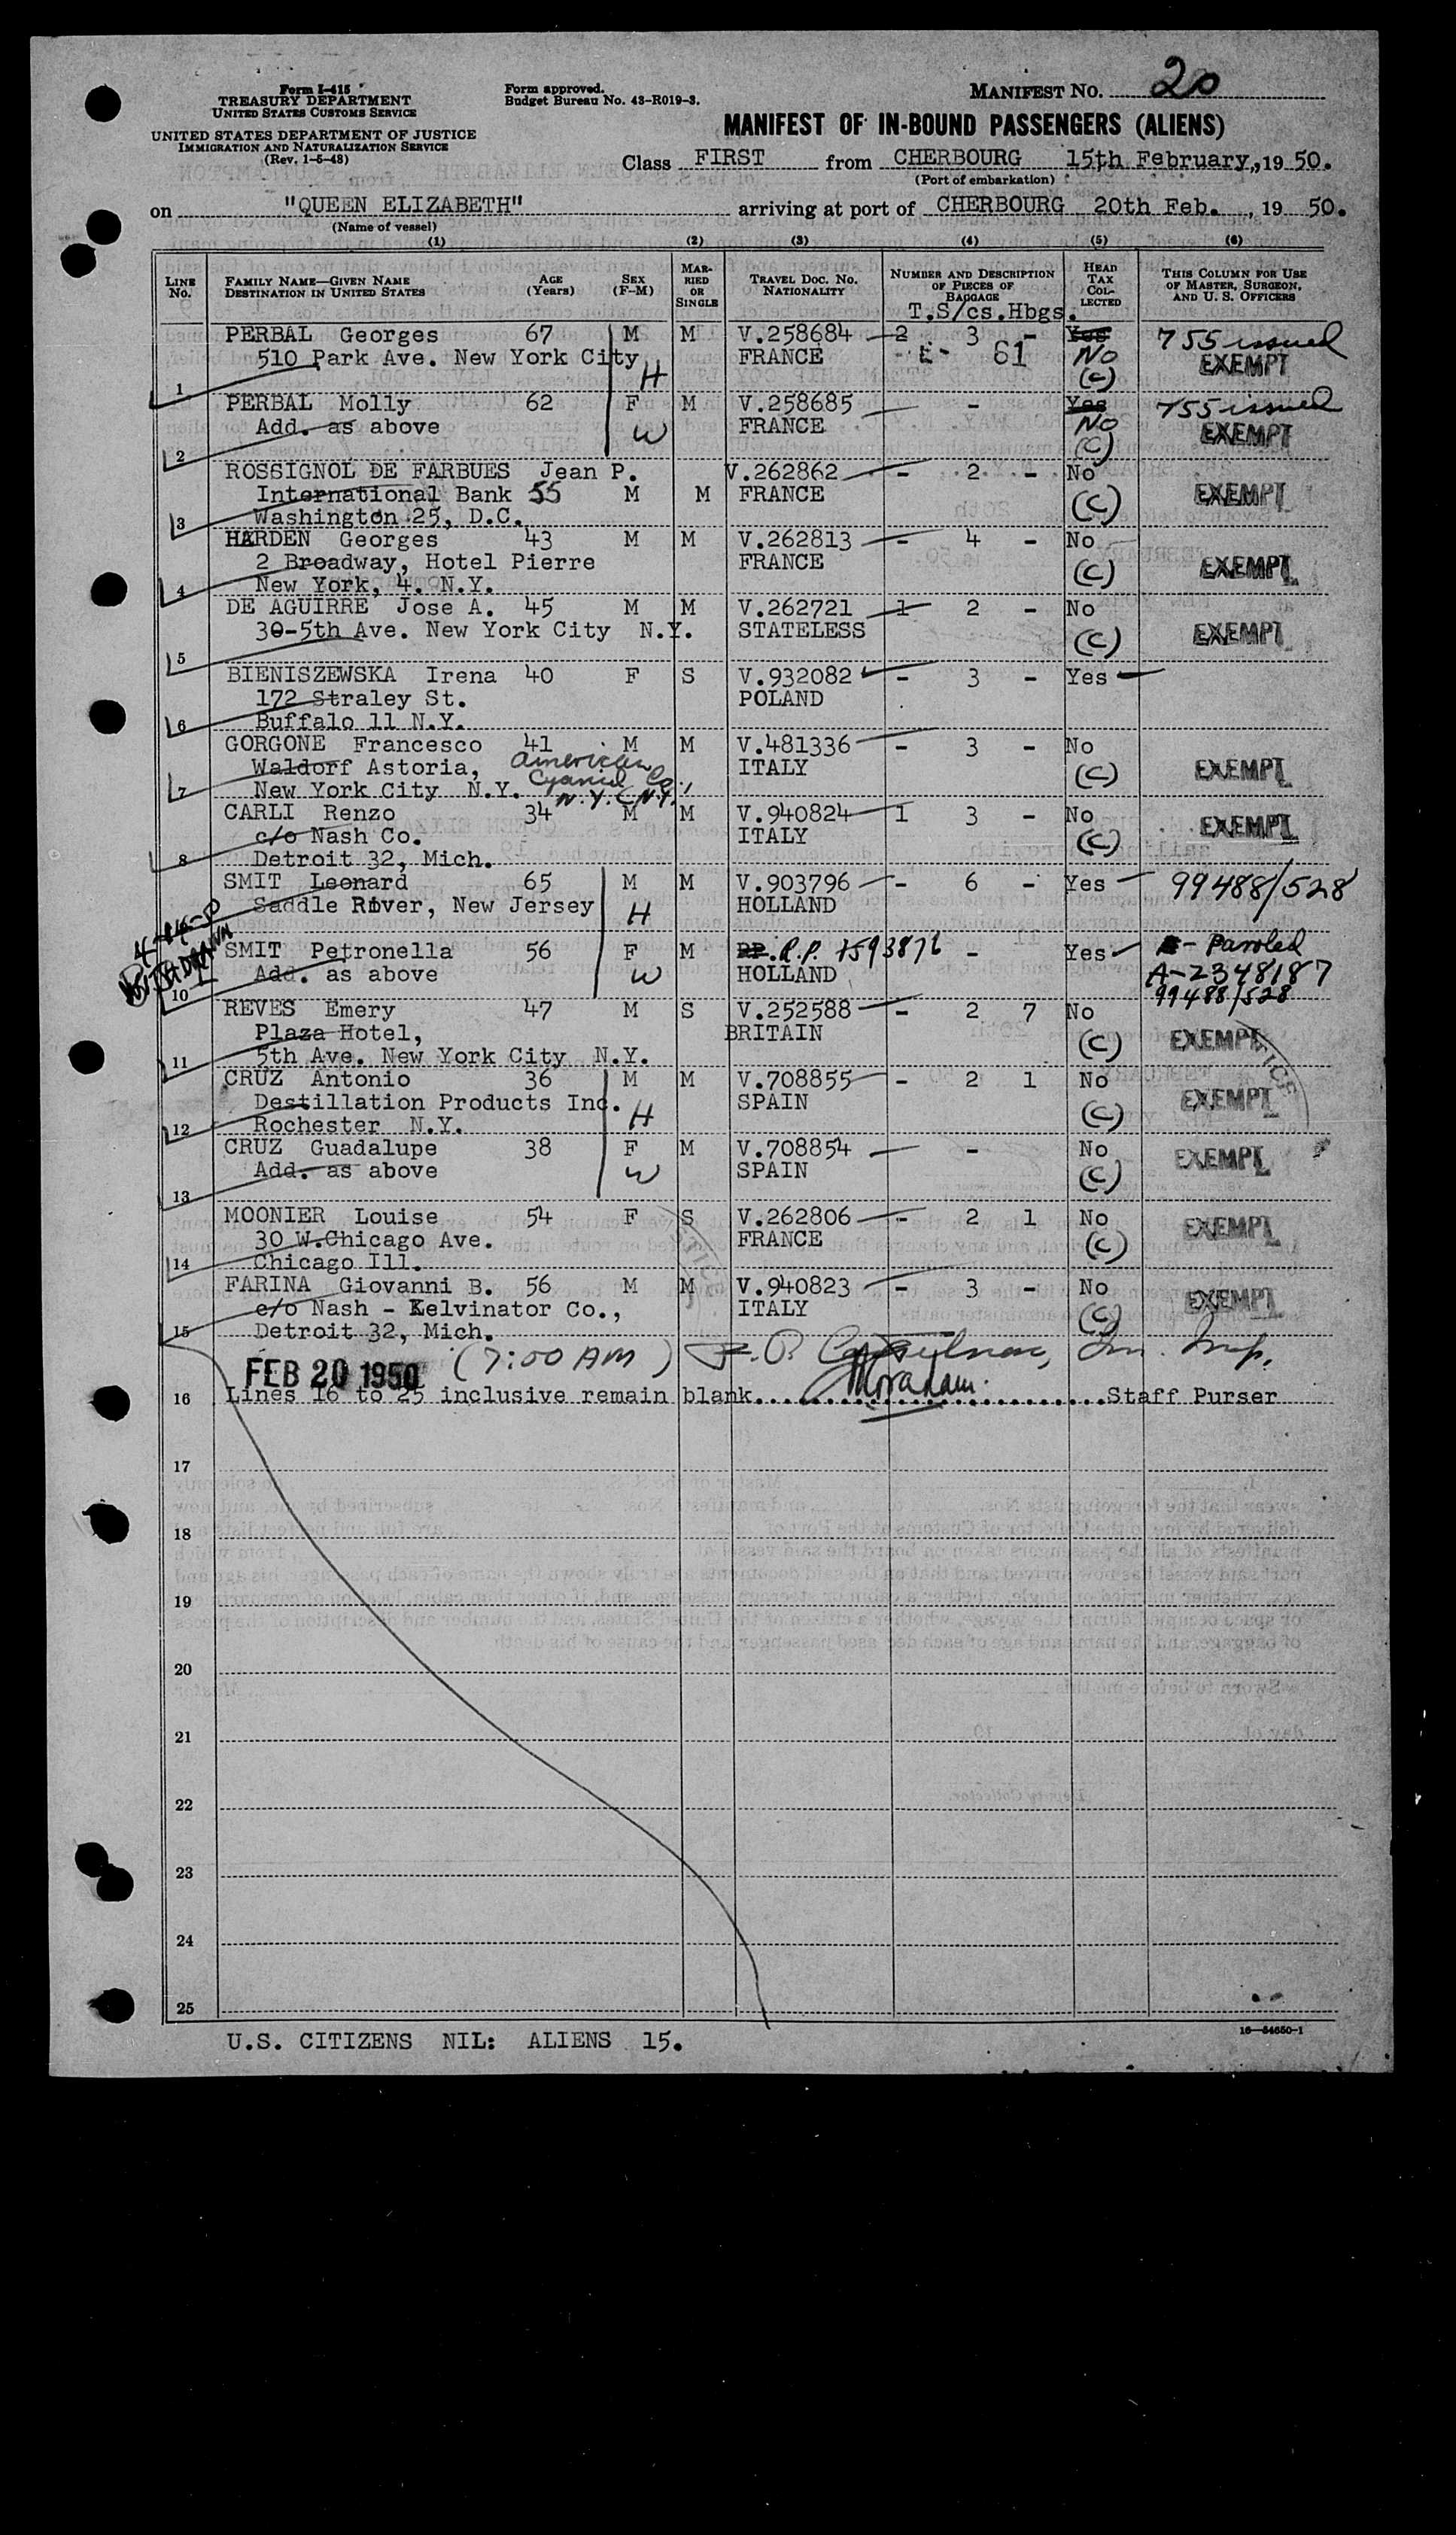 Form I-415
TREASURY DEPARTMENT
UNITED STATES CUSTOMS SERVICE
UNITED STATES DEPARTMENT OF JUSTICE
IMMIGRATION AND NATURALIZATION SERVICE
(Rev. 1-5-48)
Form approved.
Budget Bureau No. 43-R019-3.
MANIFEST NO. 20
MANIFEST OF IN-BOUND PASSENGERS (ALIENS)
Class FIRST from CHERBOURG 15th February, 19 50.
(Port of embarkation)
on "QUEEN ELIZABETH" arriving at port of CHERBOURG 20th Feb. , 19 50.
(Name of vessel)
(1) (2) (3) (4) (5) (6)
LINE No. FAMILY NAME—GIVEN NAME DESTINATION IN UNITED STATES AGE (Years) SEX (F-M) MARRIED OR SINGLE TRAVEL DOC. NO. NATIONALITY NUMBER AND DESCRIPTION OF PIECES OF BAGGAGE HEAD TAX COLLECTED THIS COLUMN FOR USE OF MASTER, SURGEON, AND U. S. OFFICERS
T.S/cs.Hbgs.
PERBAL Georges 67 M M V.258684 2 3 - Yes 755 issued
510 Park Ave. New York City H FRANCE E- 61 No EXEMPT
1 (C)
PERBAL Molly 62 F M V.258685 - Yes 755 issued
Add. as above W FRANCE No EXEMPT
2 (C)
ROSSIGNOL DE FARBUES Jean P. V.262862 - 2 - No
International Bank 55 M M FRANCE (C) EXEMPT
3 Washington 25, D.C.
HARDEN Georges 43 M M V.262813 - 4 - No
2 Broadway, Hotel Pierre FRANCE (C) EXEMPT
4 New York, 4. N.Y.
DE AGUIRRE Jose A. 45 M M V.262721 1 2 - No
30-5th Ave. New York City N.Y. STATELESS (C) EXEMPT
5
BIENISZEWSKA Irena 40 F S V.932082 - 3 - Yes
172 Straley St. POLAND
6 Buffalo 11 N.Y.
GORGONE Francesco 41 M M V.481336 - 3 - No
Waldorf Astoria, American ITALY (C) EXEMPT
7 New York City N.Y. Cyanid Co., N.Y.C N.Y.
CARLI Renzo 34 M M V.940824 1 3 - No
c/o Nash Co. ITALY (C) EXEMPT
8 Detroit 32, Mich.
SMIT Leonard 65 M M V.903796 - 6 - Yes 99488/528
Saddle River, New Jersey H HOLLAND
SMIT Petronella 56 F M R.P. 1593876 - Yes - Paroled
Add. as above W HOLLAND A-2348187
10 99488/528
REVES Emery 47 M S V.252588 - 2 7 No
Plaza Hotel, BRITAIN (C) EXEMPT
11 5th Ave. New York City N.Y.
CRUZ Antonio 36 M M V.708855 - 2 1 No
Destillation Products Inc. H SPAIN (C) EXEMPT
12 Rochester N.Y.
CRUZ Guadalupe 38 F M V.708854 - No
Add. as above W SPAIN (C) EXEMPT
13
MOONIER Louise 54 F S V.262806 - 2 1 No
30 W.Chicago Ave. FRANCE (C) EXEMPT
14 Chicago Ill.
FARINA Giovanni B. 56 M M V.940823 - 3 - No
c/o Nash - Kelvinator Co., ITALY (C) EXEMPT
15 Detroit 32, Mich.
FEB 20 1950 (7:00 AM)
16 Lines 16 to 25 inclusive remain blank..........Staff Purser
17
18
19
20
21
22
23
24
25
16—54650-1
U.S. CITIZENS NIL: ALIENS 15.